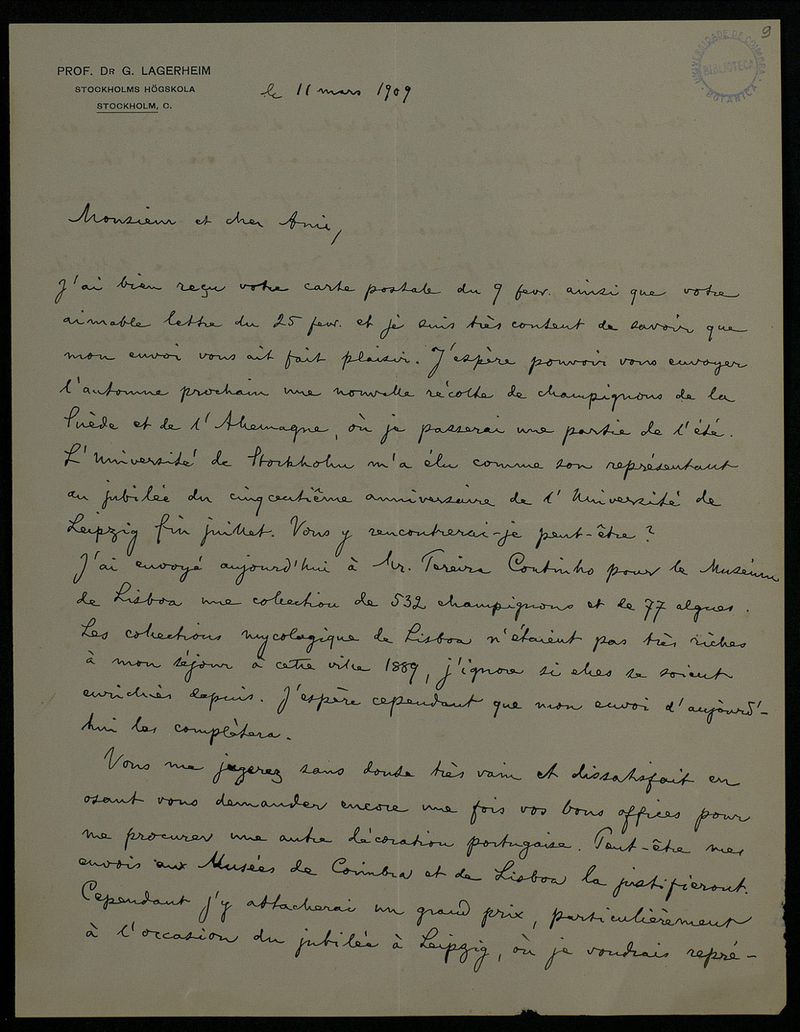 9
UNIVERSIDADE DE COIMBRA
BIBLIOTECA
BOTANICA
PROF. DR G. LAGERHEIM
STOCKHOLMS HÖGSKOLA
STOCKHOLM, C.
le 11 mars 1909
Monsieur et cher Ami,
J'ai bien reçu votre carte postale du 9 fevr. ainsi que votre
aimable lettre du 25 fevr. et je suis très content de savoir que
mon envoi vous ait fait plaisir. J'espère pouvoir vous envoyer
l'automne prochain une nouvelle récolte de champignons de la
Suède et de l'Allemagne, où je passerai une partie de l'été.
L'Université de Stockholm m'a élu comme son représentant
au jubilée du cinqcentième anniversaire de l'Université de
Leipzig fin juillet. Vous y rencontrerai-je peut-être?
J'ai envoyé aujourd'hui à Mr. Pereira Coutinho pour le Muséum
de Lisboa une collection de 532 champignons et de 77 algues.
Les collections mycologique de Lisboa n'étaient pas très riches
à mon séjour à cette ville 1889, j'ignore si elles se soient
enrichies depuis. J'espère cependant que mon envoi d'aujourd'-
hui les complètera.
Vous me jugerez sans doute très vain et dissatisfait en
osant vous demander encore une fois vos bons offices pour
me procurer une autre décoration portugaise. Peut-être mes
envois aux Musées de Coimbra et de Lisboa la justifieront.
Cependant j'y attacherai un grand prix, particulièrement
à l'occasion du jubilée à Leipzig, où je voudrais repré-